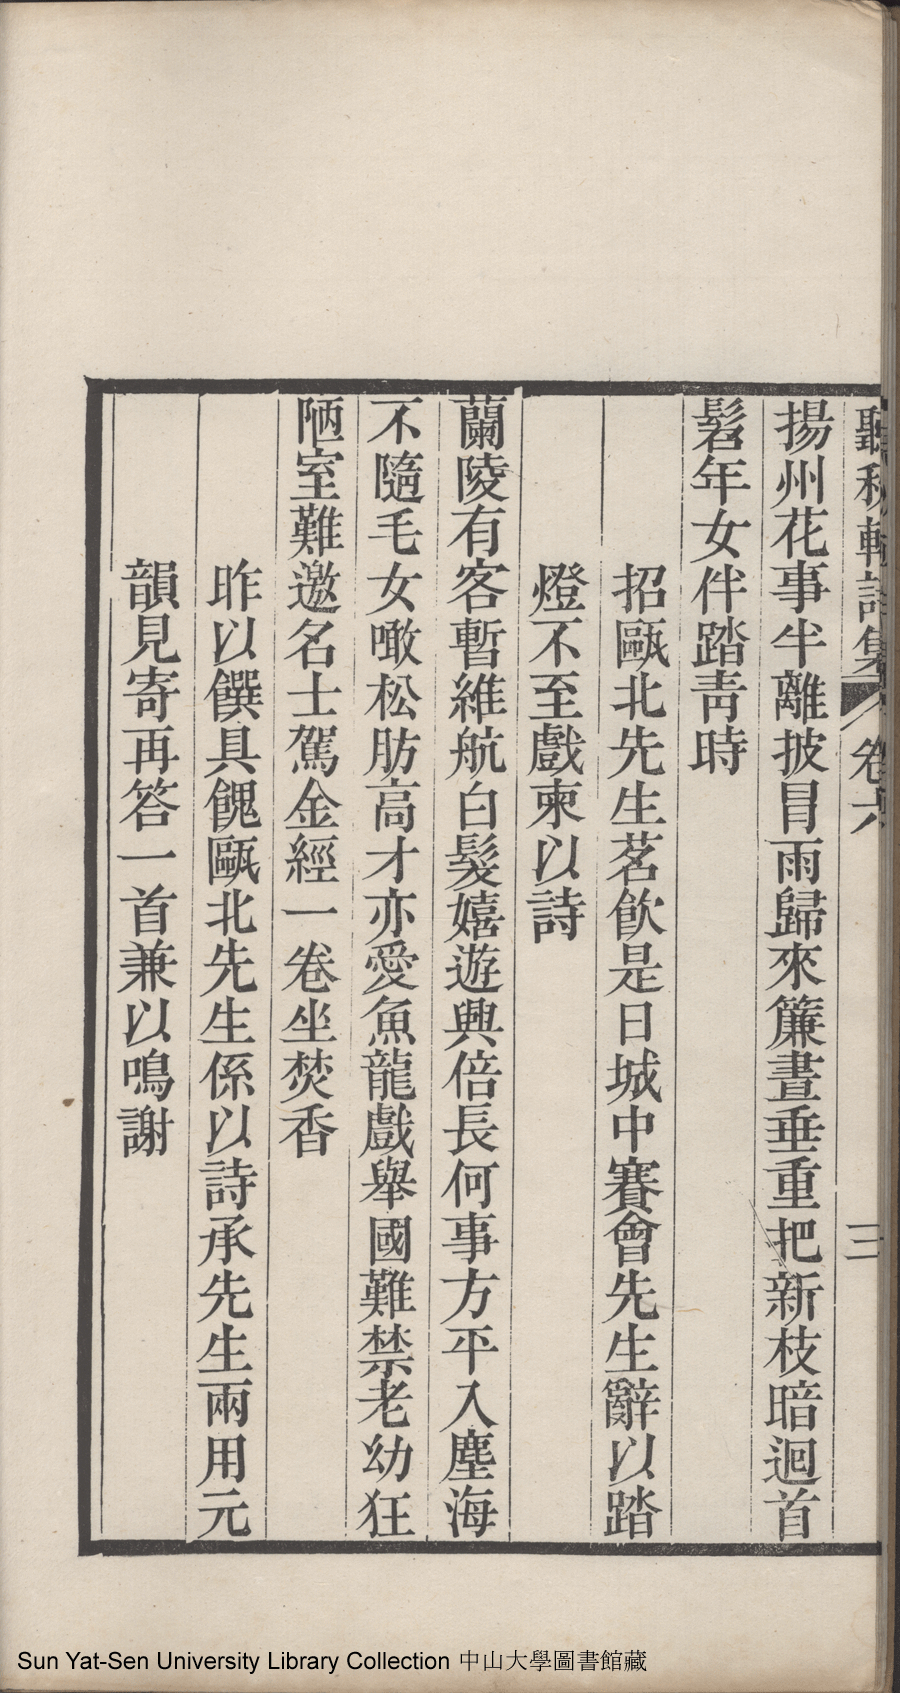 聽秋軒詩集 卷六 三
揚州花事半離披冒雨歸來簾晝垂重把新枝暗迴首
髫年女伴踏靑時
招甌北先生茗飮是日城中賽會先生辭以踏
燈不至戲柬以詩
蘭陵有客暫維航白髮嬉遊興倍長何事方平入塵海
不隨毛女噉松肪高才亦愛魚龍戲舉國難禁老幼狂
陋室難邀名士駕金經一卷坐焚香
昨以饌具餽甌北先生係以詩承先生兩用元
韻見寄再答一首兼以鳴謝
Sun Yat-Sen University Library Collection 中山大學圖書館藏